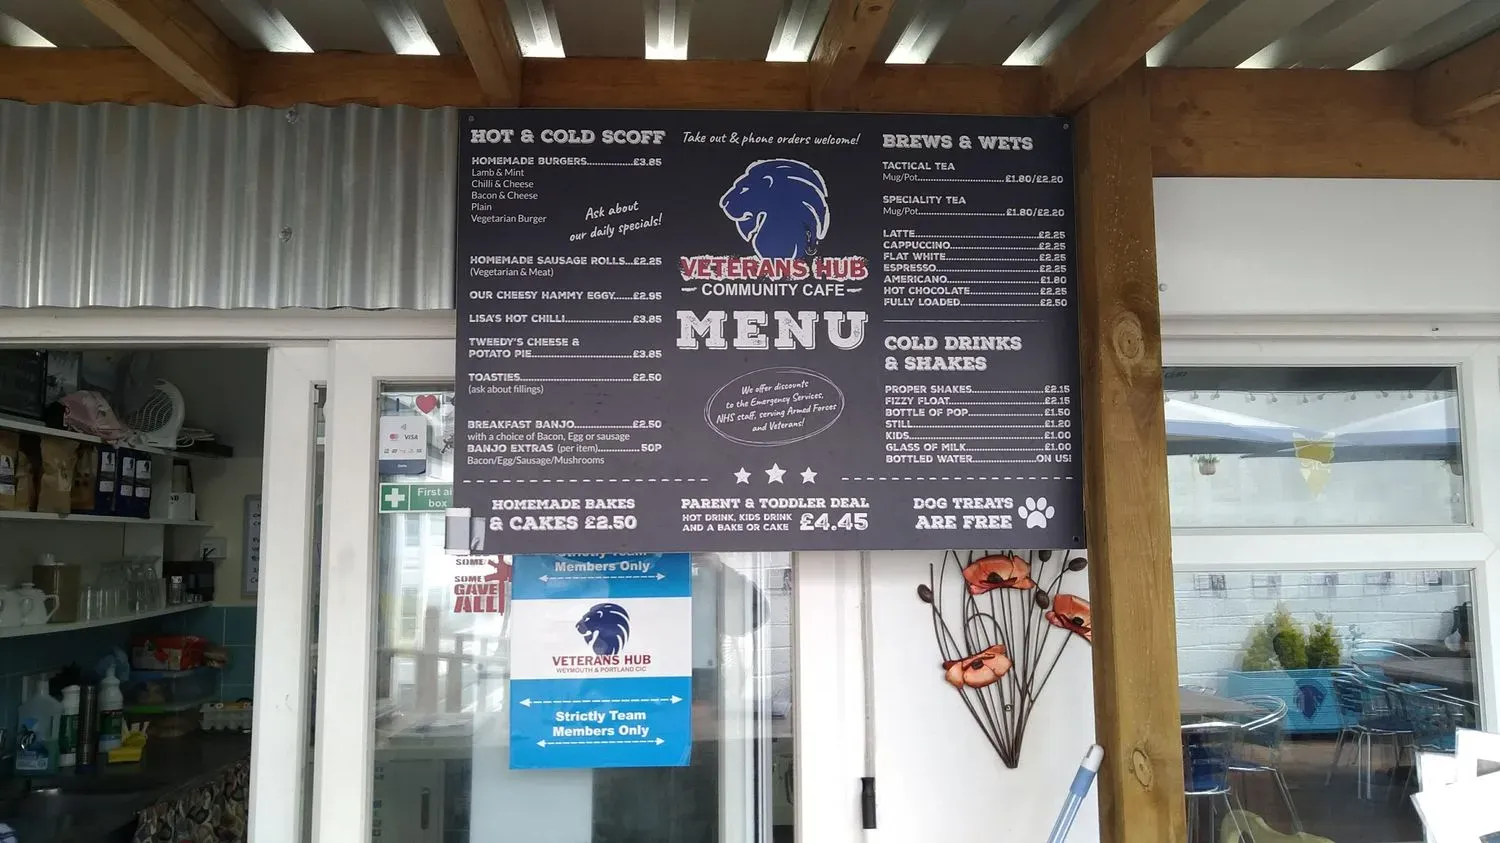 HOT & COLD SCOFF
HOMEMADE BURGERS..............£3.85
Lamb & Mint
Chilli & Cheese
Bacon & Cheese
Plain
Vegetarian Burger
Ask about
our daily specials!
HOMEMADE SAUSAGE ROLLS...£2.25
(Vegetarian & Meat)
OUR CHEESY HAMMY EGGY......£2.95
LISA'S HOT CHILLI.....................£3.85
TWEEDY'S CHEESE &
POTATO PIE...............................£3.85
TOASTIES...................................£2.50
(ask about fillings)
BREAKFAST BANJO..................£2.50
with a choice of Bacon, Egg or sausage
BANJO EXTRAS (per item)............50P
Bacon/Egg/Sausage/Mushrooms
Take out & phone orders welcome!
VETERANS HUB
COMMUNITY CAFE
MENU
We offer discounts
to the Emergency Services,
NHS staff, serving Armed Forces
and Veterans!
BREWS & WETS
TACTICAL TEA
Mug/Pot..........................£1.80/£2.20
SPECIALITY TEA
Mug/Pot..........................£1.80/£2.20
LATTE.....................................£2.25
CAPPUCCINO...........................£2.25
FLAT WHITE............................£2.25
ESPRESSO...............................£2.25
AMERICANO............................£1.80
HOT CHOCOLATE.....................£2.25
FULLY LOADED........................£2.50
COLD DRINKS
& SHAKES
PROPER SHAKES.....................£2.15
FIZZY FLOAT............................£2.15
BOTTLE OF POP.......................£1.50
STILL.......................................£1.20
KIDS........................................£1.00
GLASS OF MILK.......................£1.00
BOTTLED WATER..................ON US!
HOMEMADE BAKES
& CAKES £2.50
PARENT & TODDLER DEAL
HOT DRINK, KIDS DRINK
AND A BAKE OR CAKE £4.45
DOG TREATS
ARE FREE
VISA
First ai
box
SOME
SOME
GAVE
ALL
Strictly Team
Members Only
VETERANS HUB
WEYMOUTH & PORTLAND CIC
Strictly Team
Members Only